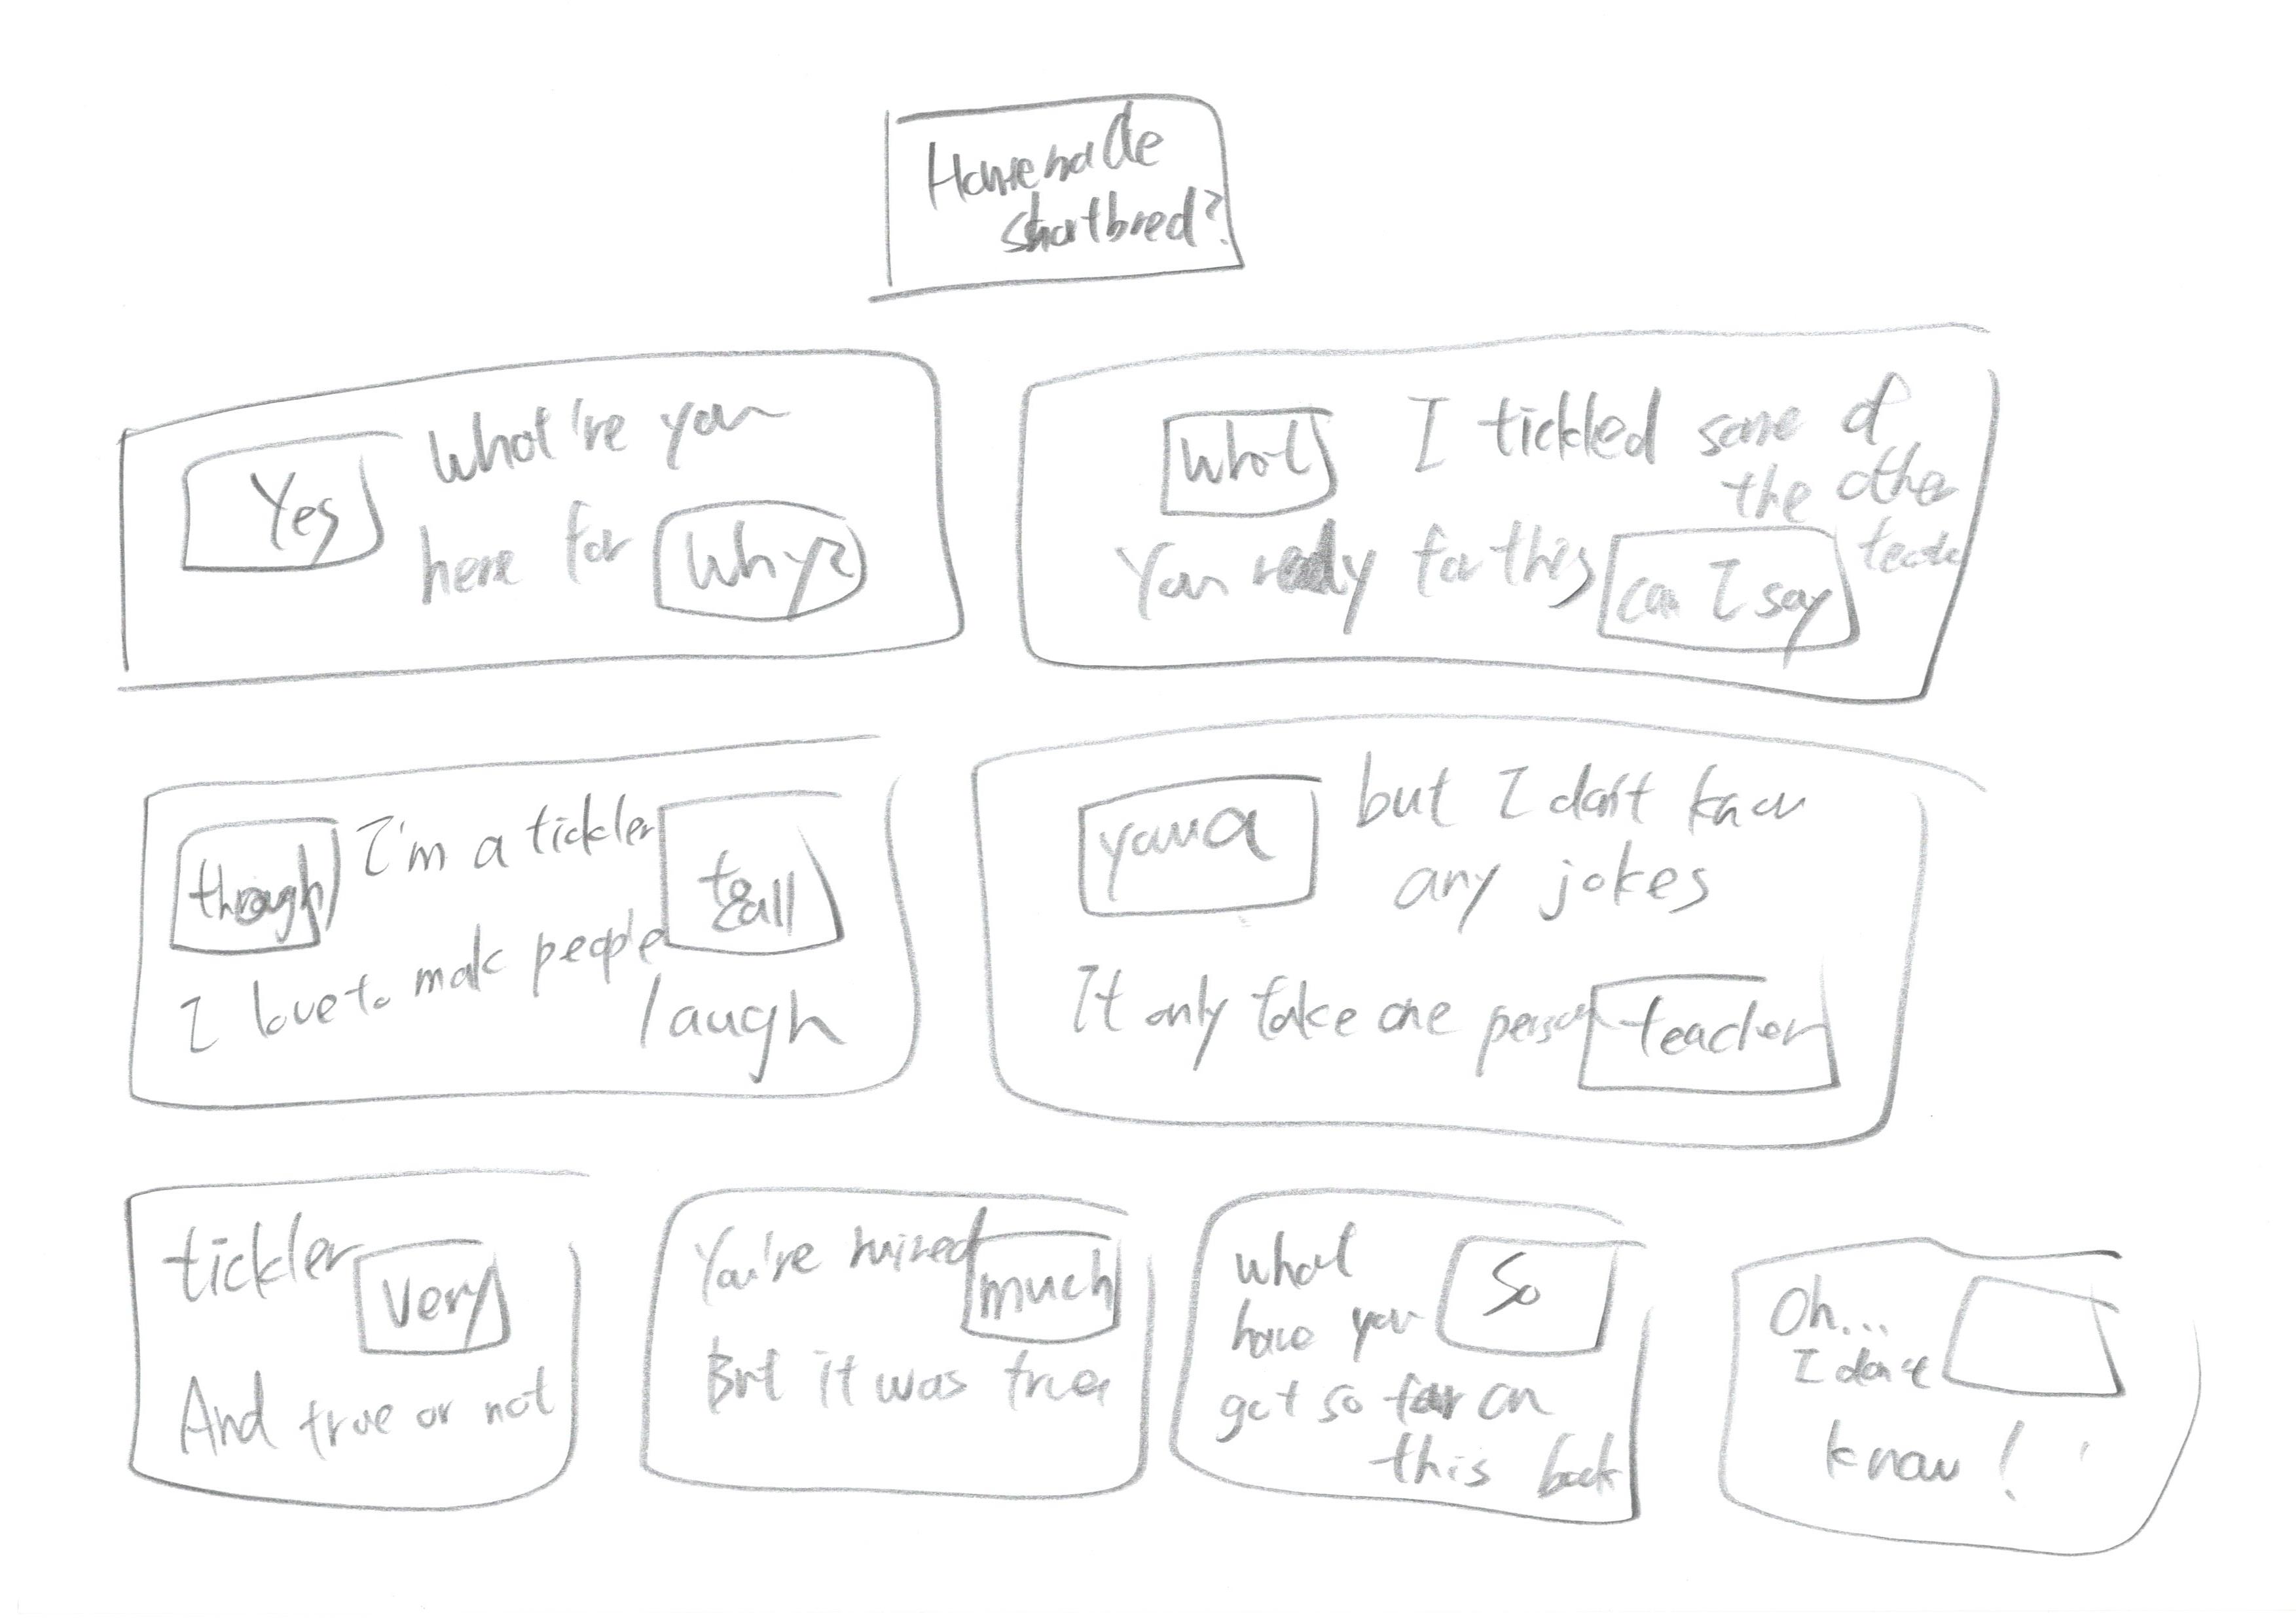 Homemade
shortbred?
Yes What're you
here for Why?
What I tickled some of
the other
You ready for this can I say
though I'm a tickler to call
I love to make people
laugh
but I don't know
any jokes
It only take one person teacher
tickler very
And true or not
You're ruined much
But it was true
what So
have you
got so far on
this book
Oh...
I don't
know!